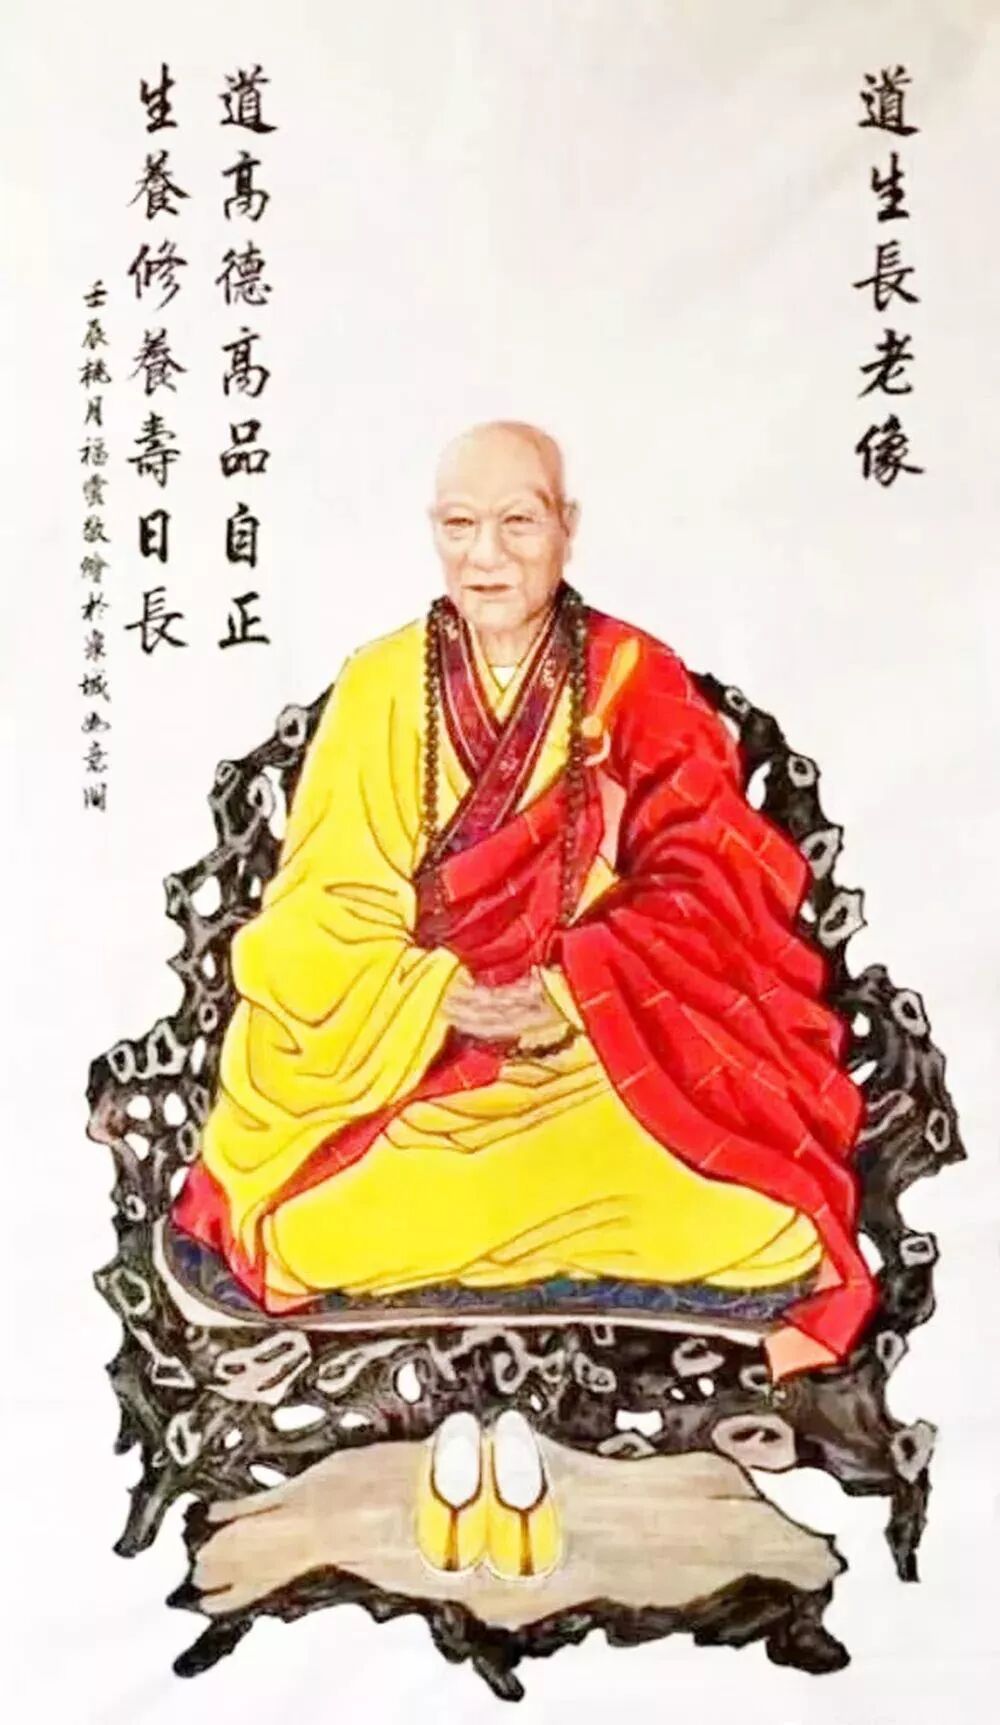 道生長老像
道高德高品自正
生養修養壽日長
壬辰桃月福雲敬繪於城如意閣